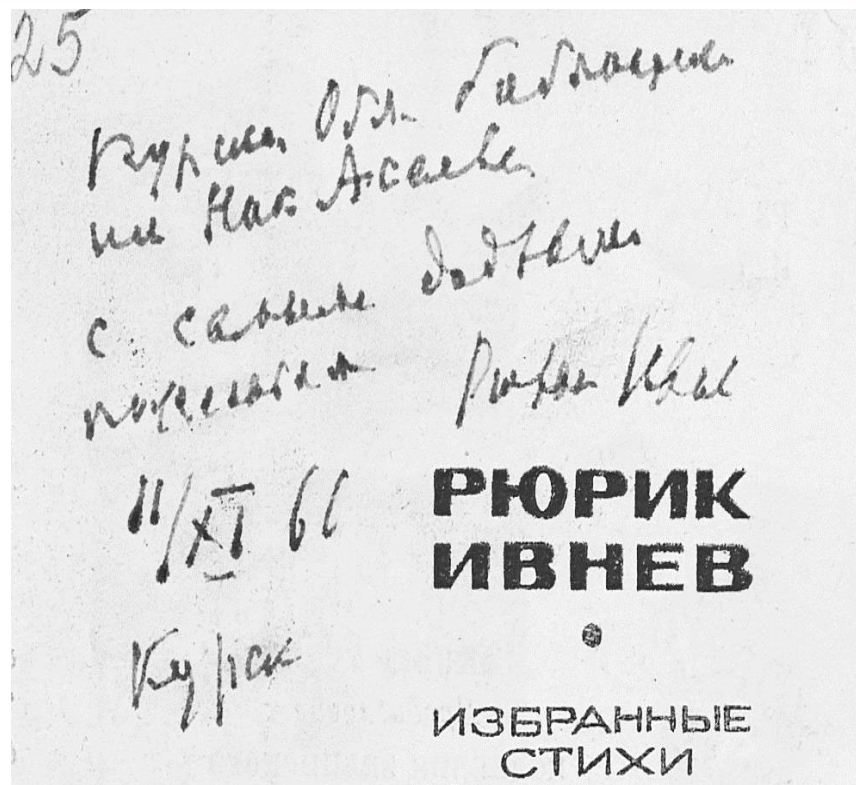 25
Курск. Обл. библиотеке
им Ник. Асеева
с самыми добрыми
пожеланиями Рюрик Ивнев
11/XI 66
Курск
РЮРИК
ИВНЕВ
ИЗБРАННЫЕ
СТИХИ